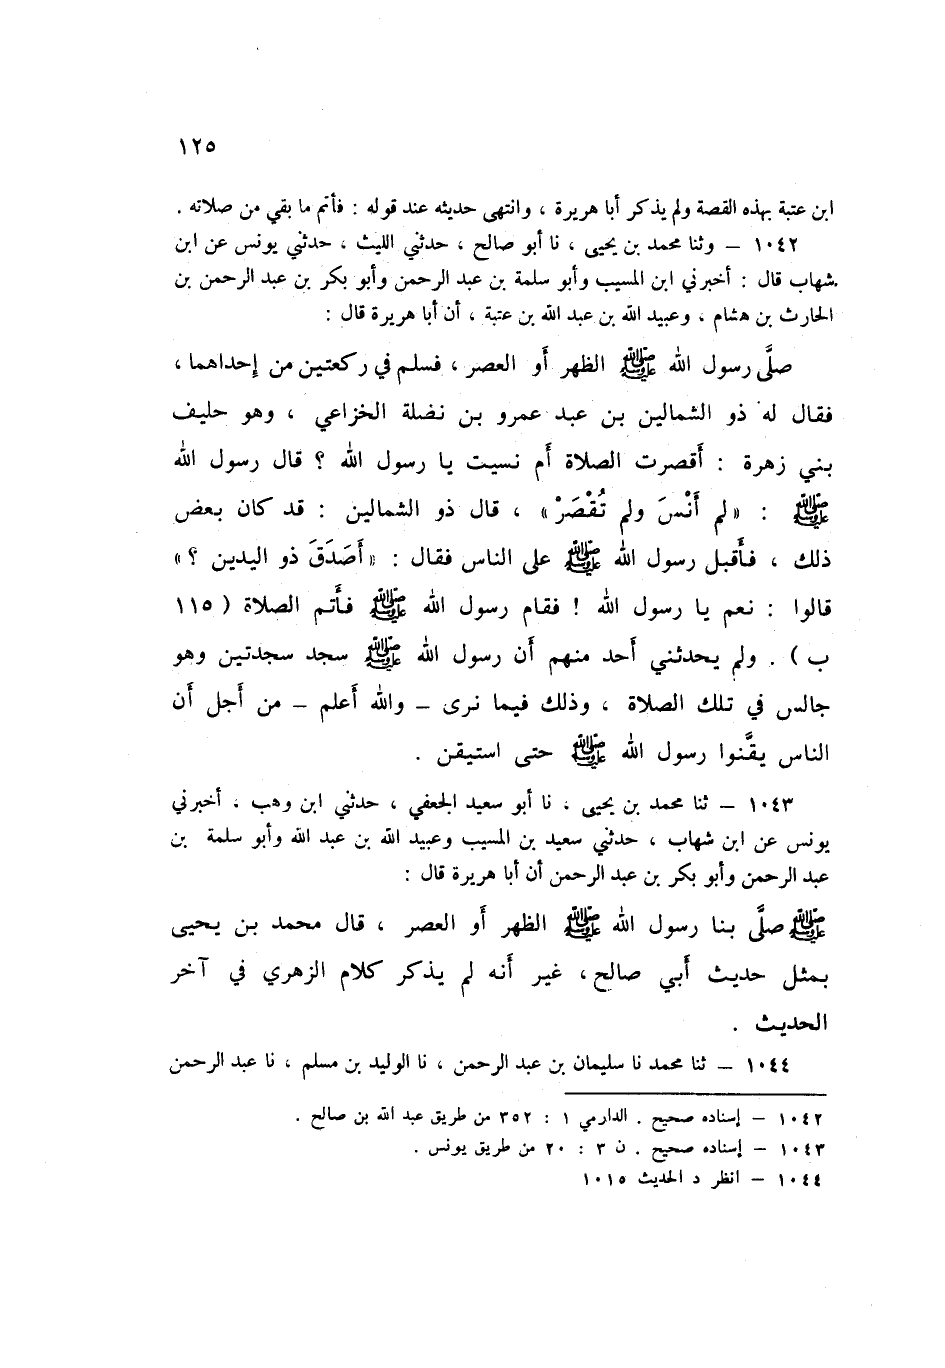 ١٢٥
ابن عتبة بهذه القصة ولم يذكر أبا هريرة ، وانتهى حديثه عند قوله : فأتم ما بقي من صلاته .
١٠٤٢ – وثنا محمد بن يحيى ، نا أبو صالح ، حدثني الليث ، حدثني يونس عن ابن
شهاب قال : أخبرني ابن المسيب وأبو سلمة بن عبد الرحمن وأبو بكر بن عبد الرحمن بن
الحارث بن هشام ، وعبيد الله بن عبد الله بن عتبة ، أن أبا هريرة قال :
صلَّى رسول الله ﷺ الظهر أو العصر ، فسلم في ركعتين من إحداهما ،
فقال له ذو الشمالين بن عبد عمرو بن نضلة الخزاعي ، وهو حليف
بني زهرة : أقصرت الصلاة أم نسيت يا رسول الله ؟ قال رسول الله
ﷺ : «لم أَنْسَ ولم تُقْصَرْ» ، قال ذو الشمالين : قد كان بعض
ذلك ، فأقبل رسول الله ﷺ على الناس فقال : «أَصَدَقَ ذو اليدين ؟»
قالوا : نعم يا رسول الله ! فقام رسول الله ﷺ فأتم الصلاة ( ١١٥
ب ) . ولم يحدثني أحد منهم أن رسول الله ﷺ سجد سجدتين وهو
جالس في تلك الصلاة ، وذلك فيما نرى – والله أعلم – من أجل أن
الناس يقَّنوا رسول الله ﷺ حتى استيقن .
١٠٤٣ – ثنا محمد بن يحيى ، نا أبو سعيد الجعفي ، حدثني ابن وهب ، أخبرني
يونس عن ابن شهاب ، حدثني سعيد بن المسيب وعبيد الله بن عبد الله وأبو سلمة بن
عبد الرحمن وأبو بكر بن عبد الرحمن أن أبا هريرة قال :
ﷺ صلَّى بنا رسول الله ﷺ الظهر أو العصر ، قال محمد بن يحيى
بمثل حديث أبي صالح ، غير أنه لم يذكر كلام الزهري في آخر
الحديث .
١٠٤٤ – ثنا محمد نا سليمان بن عبد الرحمن ، نا الوليد بن مسلم ، نا عبد الرحمن
١٠٤٢ – إسناده صحيح . الدارمي ١ : ٣٥٢ من طريق عبد الله بن صالح .
١٠٤٣ – إسناده صحيح . ن ٣ : ٢٠ من طريق يونس .
١٠٤٤ – انظر د الحديث ١٠١٥